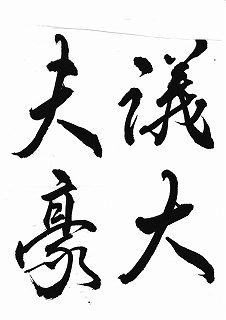 議大
夫豪